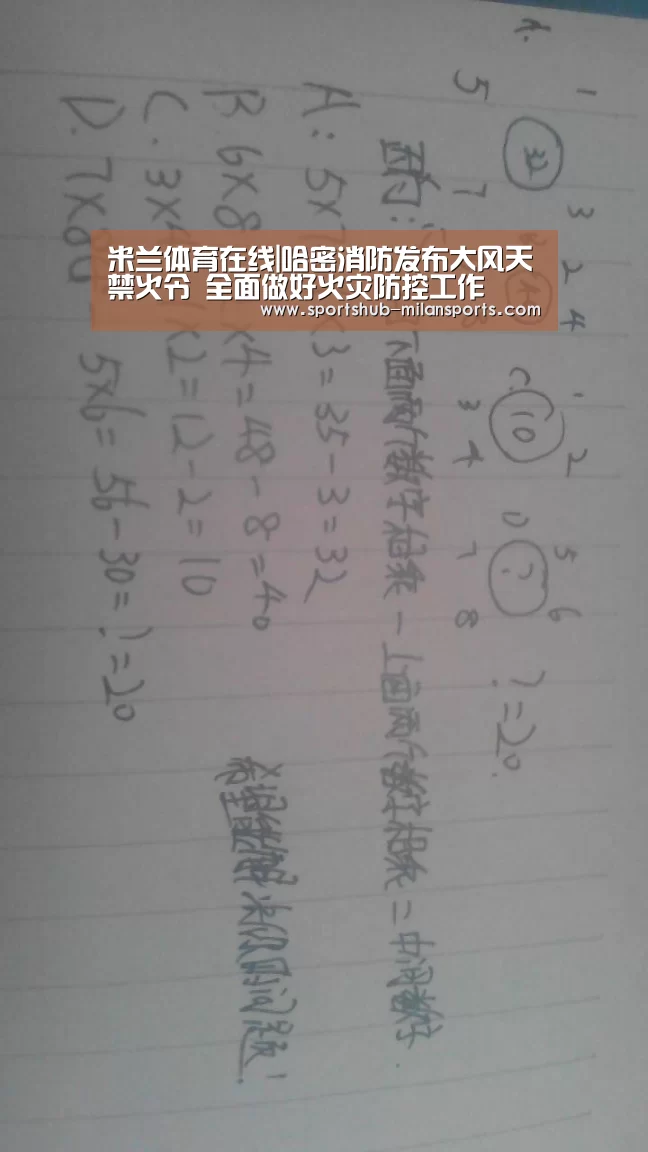 米兰体育在线|哈密消防发布大风天
禁火令 全面做好火灾防控工作
www.sportshub-milansports.com
A. 1 3
5 (32) 7
2 4
8
C. 1 2
(10)
3 4
D 5 6
(?)
7 8
?=20.
下面两个数字相乘一上面两个数字相乘=中间数字.
A: 5×7 ×3=35-3=32
B. 6×8 ×4=48-8=40
C. 3× ×2=12-2=10
D. 7×8 5×6=56-30=?=20
希望能解决你的问题!